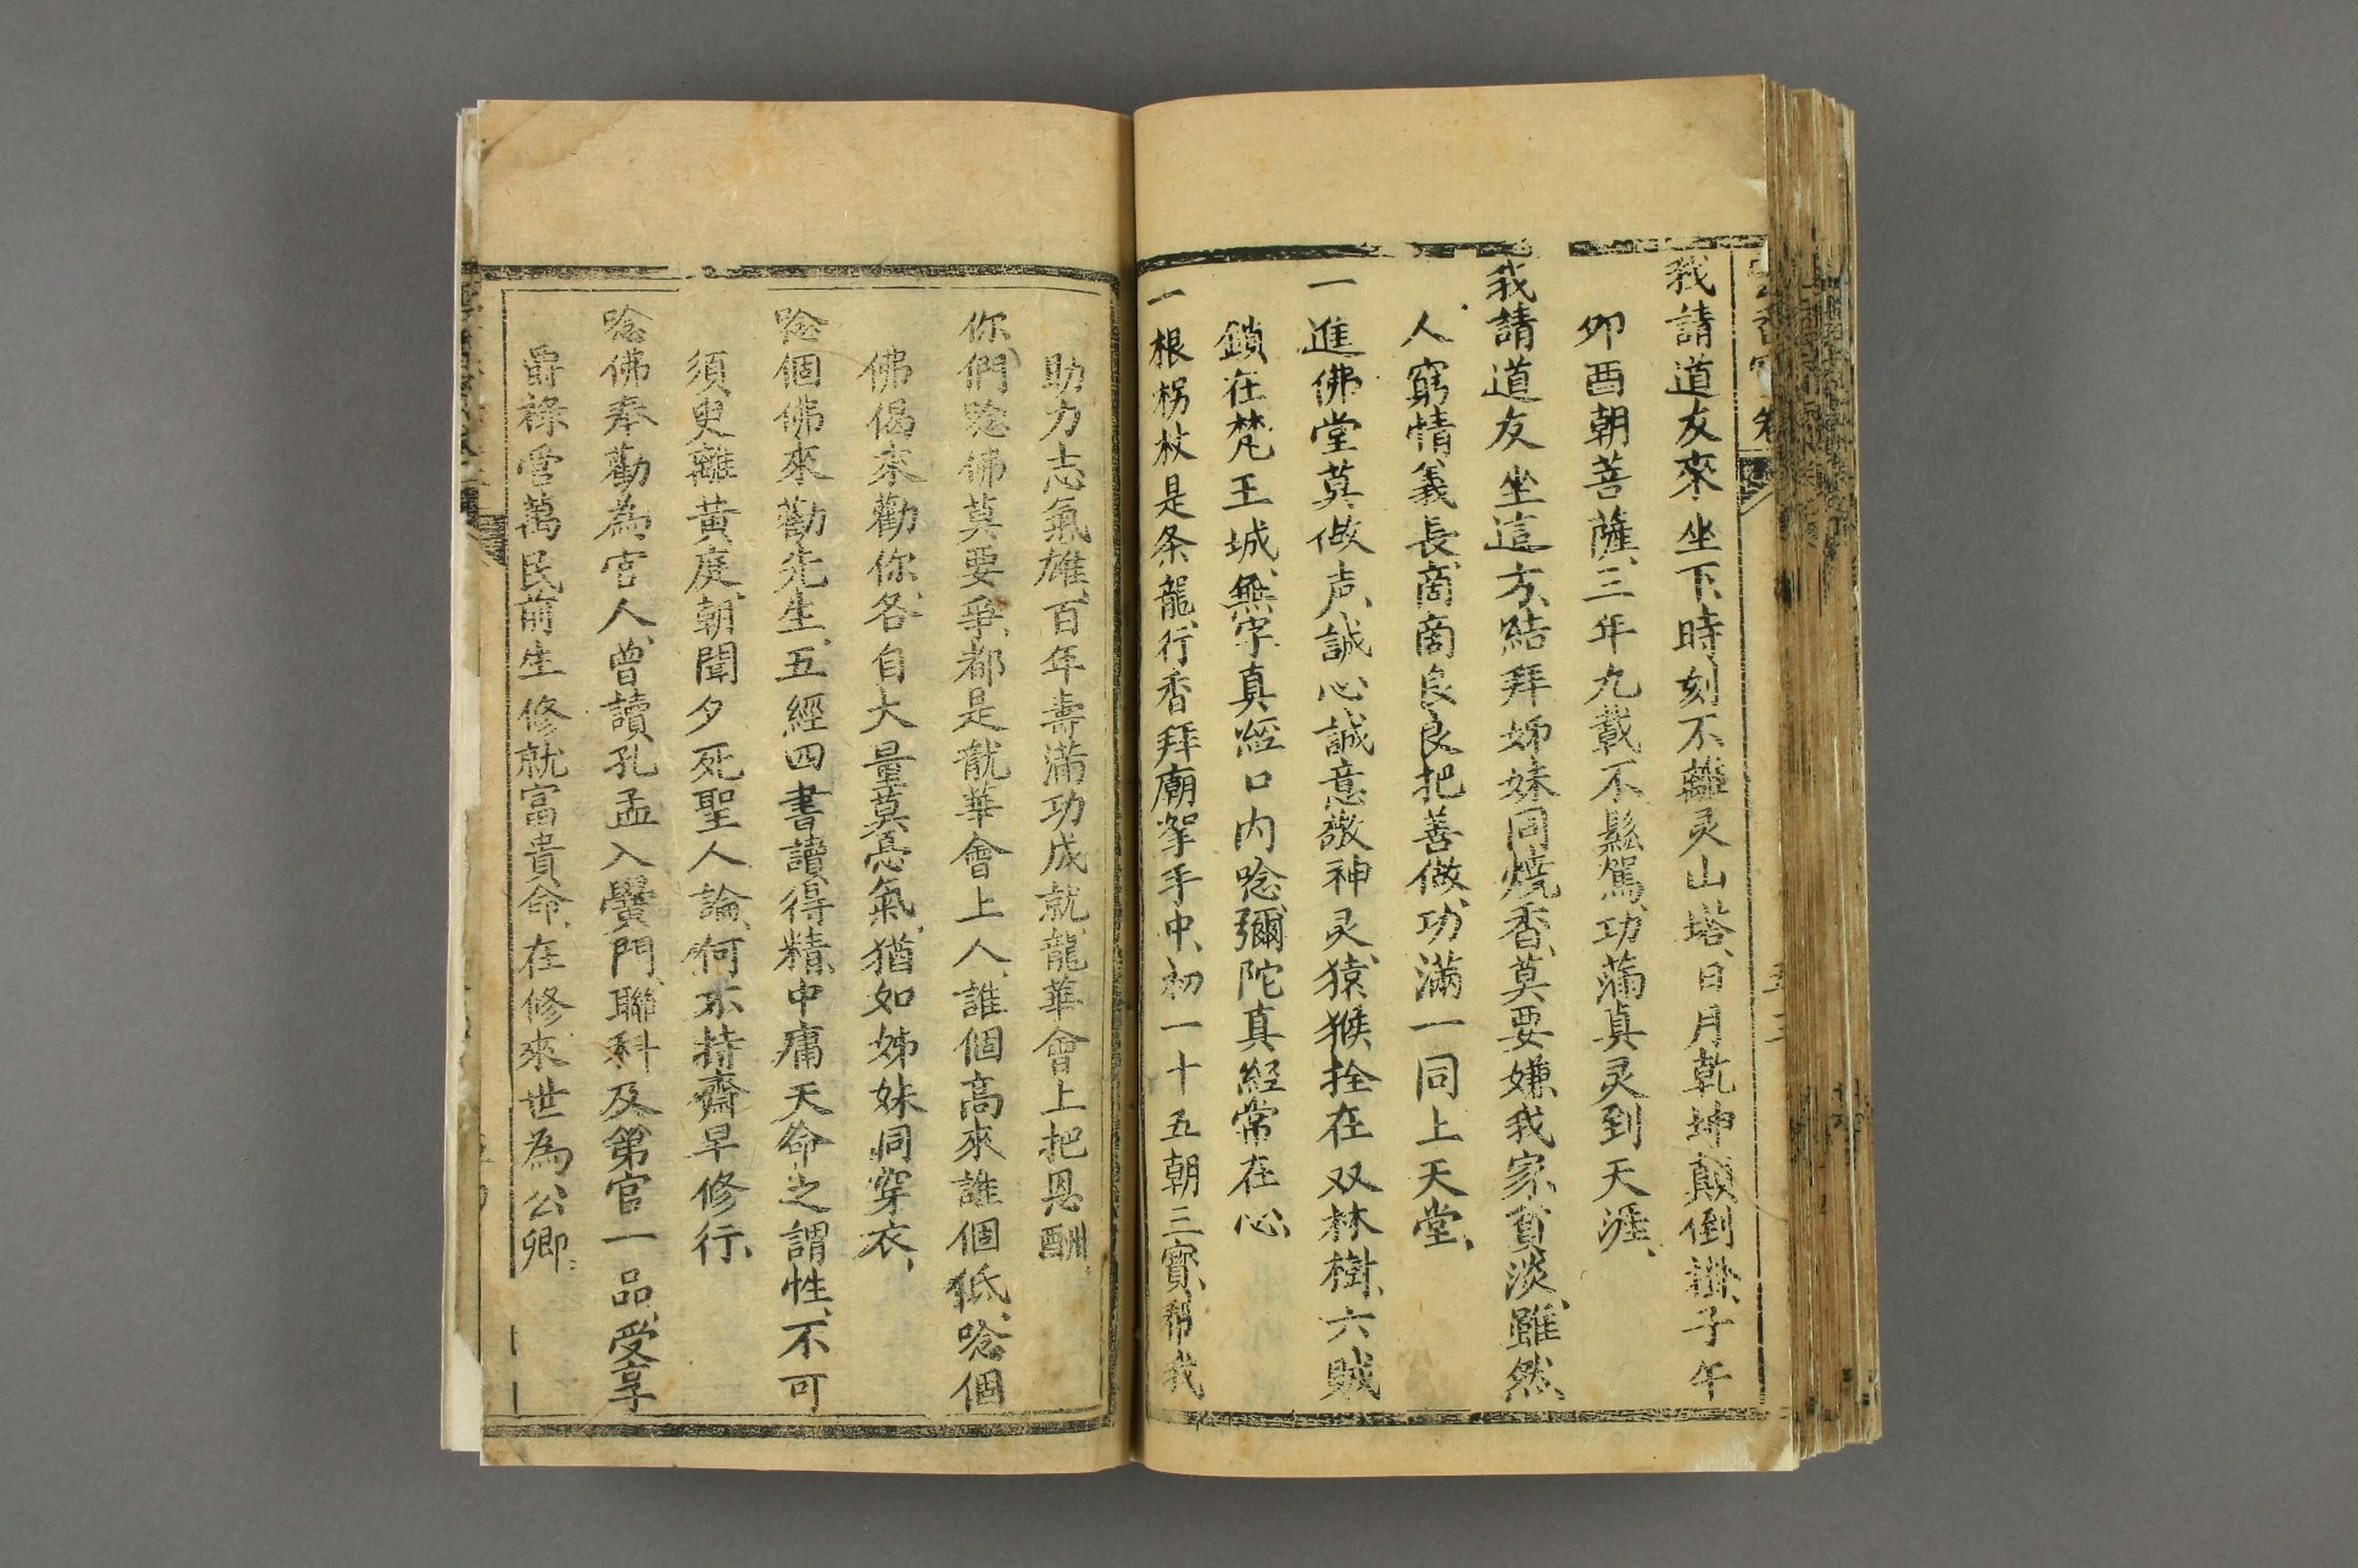 我請道友來坐下、時刻不離灵山塔、日月乾坤顛倒掛、子午
卯酉朝菩薩、三年九載不鬆駕、功滿真灵到天涯、
我請道友坐這方、結拜姊妹同燒香、莫要嫌我家貧淡、雖然
人窮情義長、啇啇良良把善做、功滿一同上天堂、
一進佛堂莫做声、誠心誠意敬神灵、猿猴拴在双林樹、六賊
鎖在梵王城、無字真經口內唸、彌陀真経常在心、
一根拐杖是条龍、行香拜廟拏手中、初一十五朝三寶、帮我
助力志氣雄、百年壽滿功成就、龍華會上把恩酬、
你們唸佛莫要爭、都是龍華會上人、誰個高來誰個低、唸個
佛偈來勸你、各自大量莫憂氣、猶如姊妹同穿衣、
唸個佛來勸先生、五經四書讀得精、中庸天命之謂性、不可
須臾離黃庭、朝聞夕死聖人論、何不持齋早修行、
唸佛奉勸為官人、曾讀孔孟入黌門、聯科及第官一品、受享
爵祿管萬民、前生修就富貴命、在修來世為公卿、